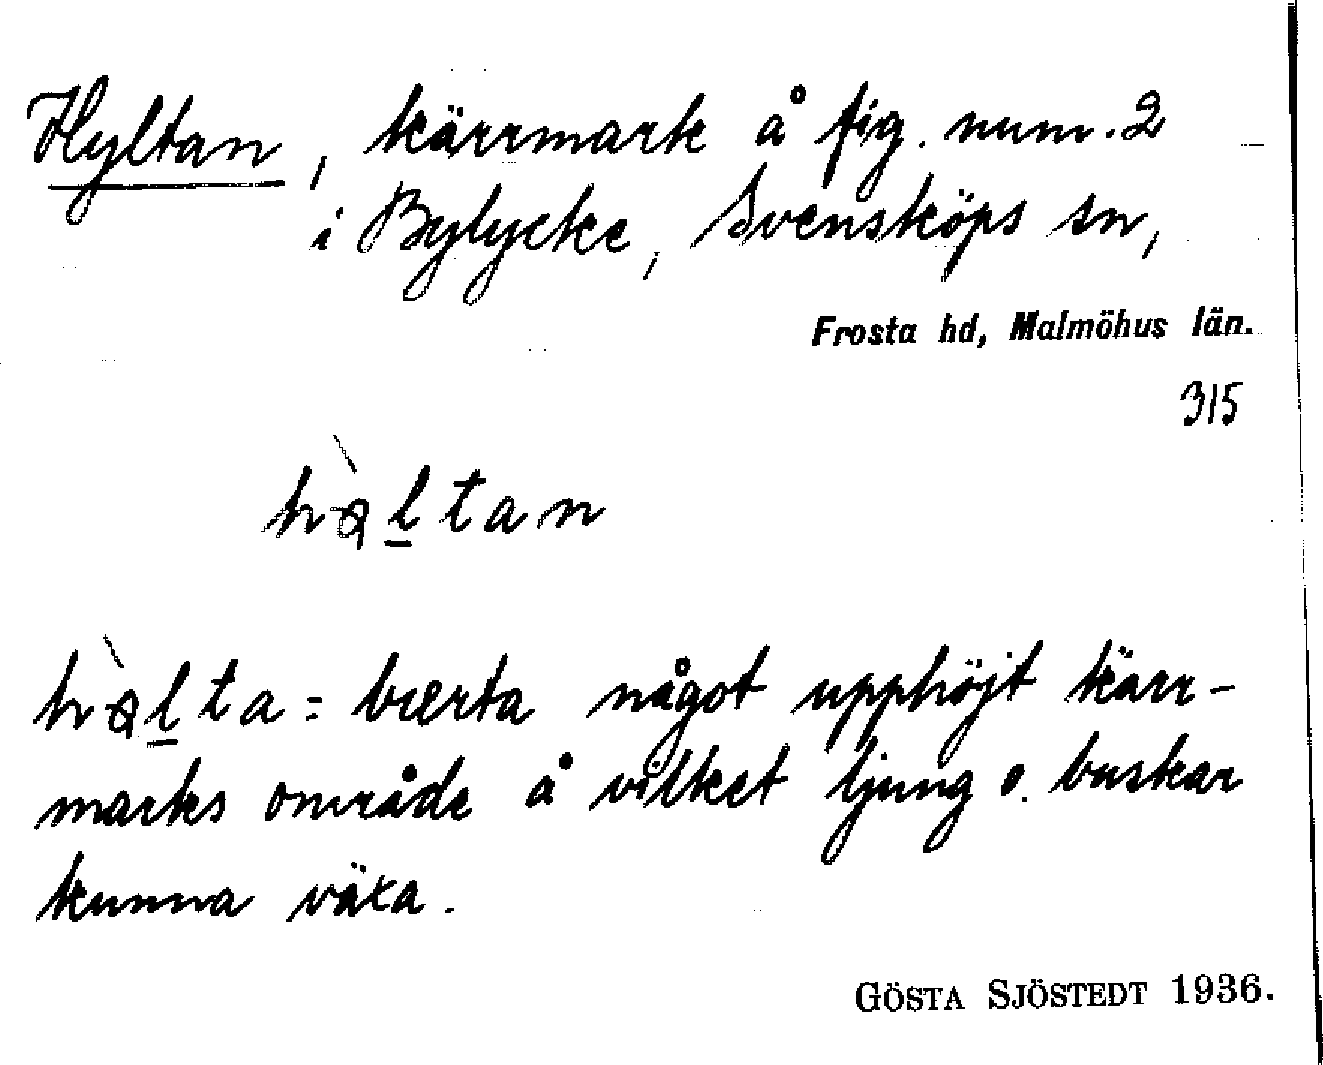 Hyltan, kärrmark å fig. num. 2
i Bylycke, Svensköps sn,
Frosta hd, Malmöhus län.
315
hə̀ltan
hə̀lta = bærta något upphöjt kärr-
marks område å vilket ljung o. buskar
kunna växa.
GÖSTA SJÖSTEDT 1936.